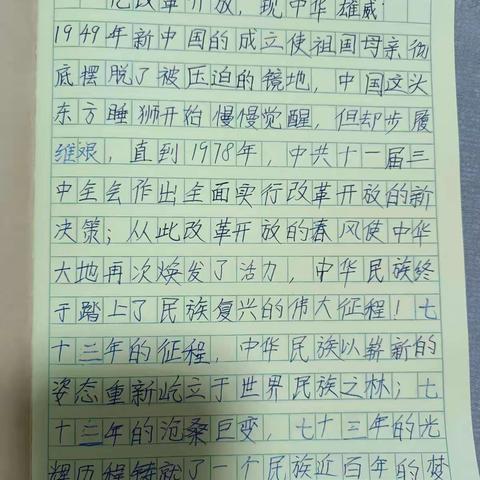 忆改革开放，现中华雄威
1949年新中国的成立使祖国母亲彻
底摆脱了被压迫的镜地，中国这头
东方睡狮开始慢慢觉醒，但却步履
维艰，直到1978年，中共十一届三
中全会作出全面实行改革开放的新
决策；从此改革开放的春风使中华
大地再次焕发了活力，中华民族终
于踏上了民族复兴的伟大征程！七
十三年的征程，中华民族以崭新的
姿态重新屹立于世界民族之林；七
十三年的沧桑巨变，七十三年的光
辉历程铸就了一个民族近百年的梦